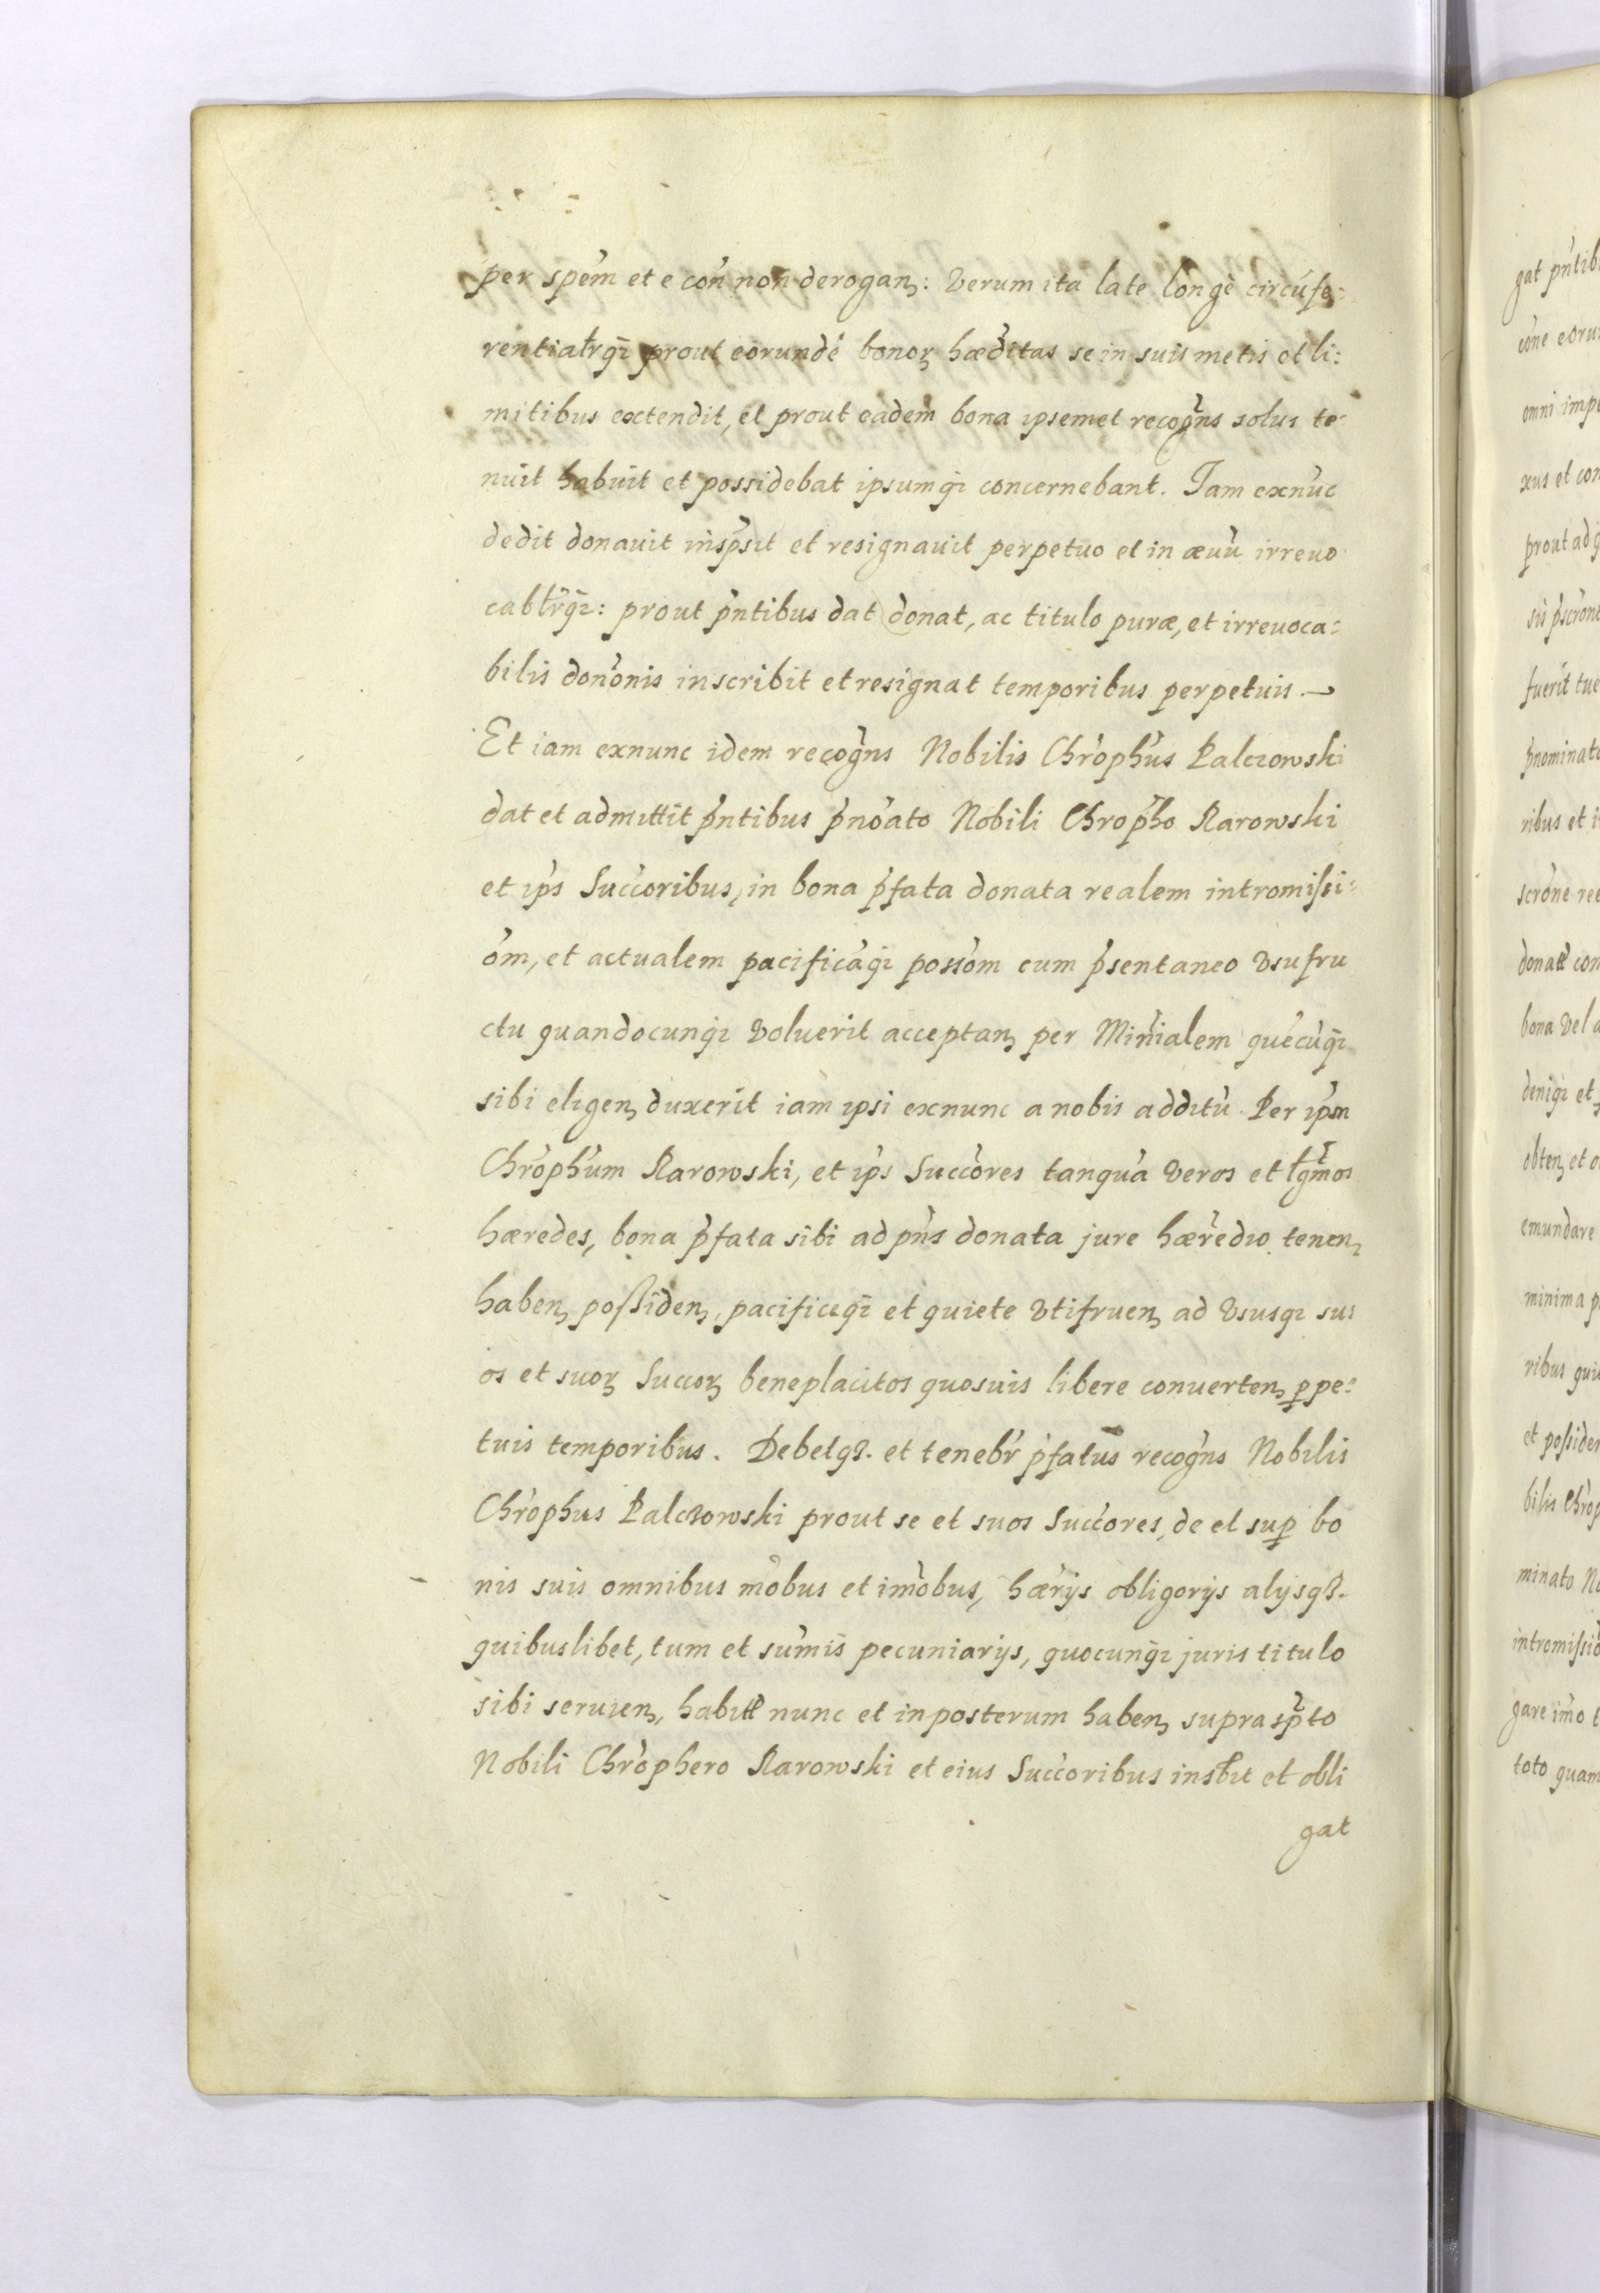 per spe̾m et e con̾ non derogan̜: Verum ita late longè circu̾fe:
rentialr̾qꝫ prout eorundē bonoꝝ hæd̾itas se in suis metis et li:
mitibus extendit, et prout eadem bona ipsemet recog̾ns solus te-
nuit habuit et possidebat ipsumqꝫ concernebant. Iam exnūc
dedit donauit insp̾sit et resignauit perpetuo et in æuū irreuo
cablr̾qꝫ: prout p̾ntibus dat donat, ac titulo puræ, et irreuoca:
bilis don̾onis inscribit et resignat temporibus perpetuis.
Et iam exnunc idem recog̾ns Nobilis Chr̾oph̾us Palczowski
dat et admittit p̾ntibus p̾no̾ato Nobili Chrop̾ho Rarowski
et ip̾s Succ̾oribus, in bona p̾fata donata realem intromissi:
o̾m, et actualem pacifica̾qꝫ posso̾m cum p̾sentaneo Vsufru
ctu quandocunqꝫ Voluerit acceptan̜ per Min̾ialem quēcūqꝫ
sibi eligen̜ duxerit iam ipsi exnunc a nobis additū. Per ip̾m
Chr̾oph̾um Rarowski, et ip̾s Succ̾ores tanquā veros et lgm̾os
hæredes, bona p̾fata sibi ad pn̾s donata jure hær̾edio tenen̜
haben̜ possiden̜, pacificeqꝫ et quiete Vtifruen̜ ad Vsusqꝫ su:
os et suoꝝ Succoꝝ beneplacitos quosuis libere conuerten̜ ꝑpe:
tuis temporibus. Debetqꝫ. et tenebr̾ p̾fatus recog̾ns Nobilis
Chr̾ophus Palczowski prout se et suos Succ̾ores, de et suꝑ bo
nis suis omnibus mo̾bus et imo̾bus, hær̾ijs obligorijs alijsqꝫ.
quibuslibet, tum et sum̄is pecuniarijs, quocunqꝫ juris titulo
sibi seruien̜, habitℓ nunc et inposterum haben̜ supra sp̾to
Nobili Chr̾ophero Rarowski et eius Succ̾oribus insb̾it et obli
gat
gat p̾ntib
omni imp
xus et con
prout ad q
p̾nominato
ribus et i
bona Vel a
emundare
minima p
ribus qui
et possiden
bilis Chr̾op
minato No
intromissio
toto quam